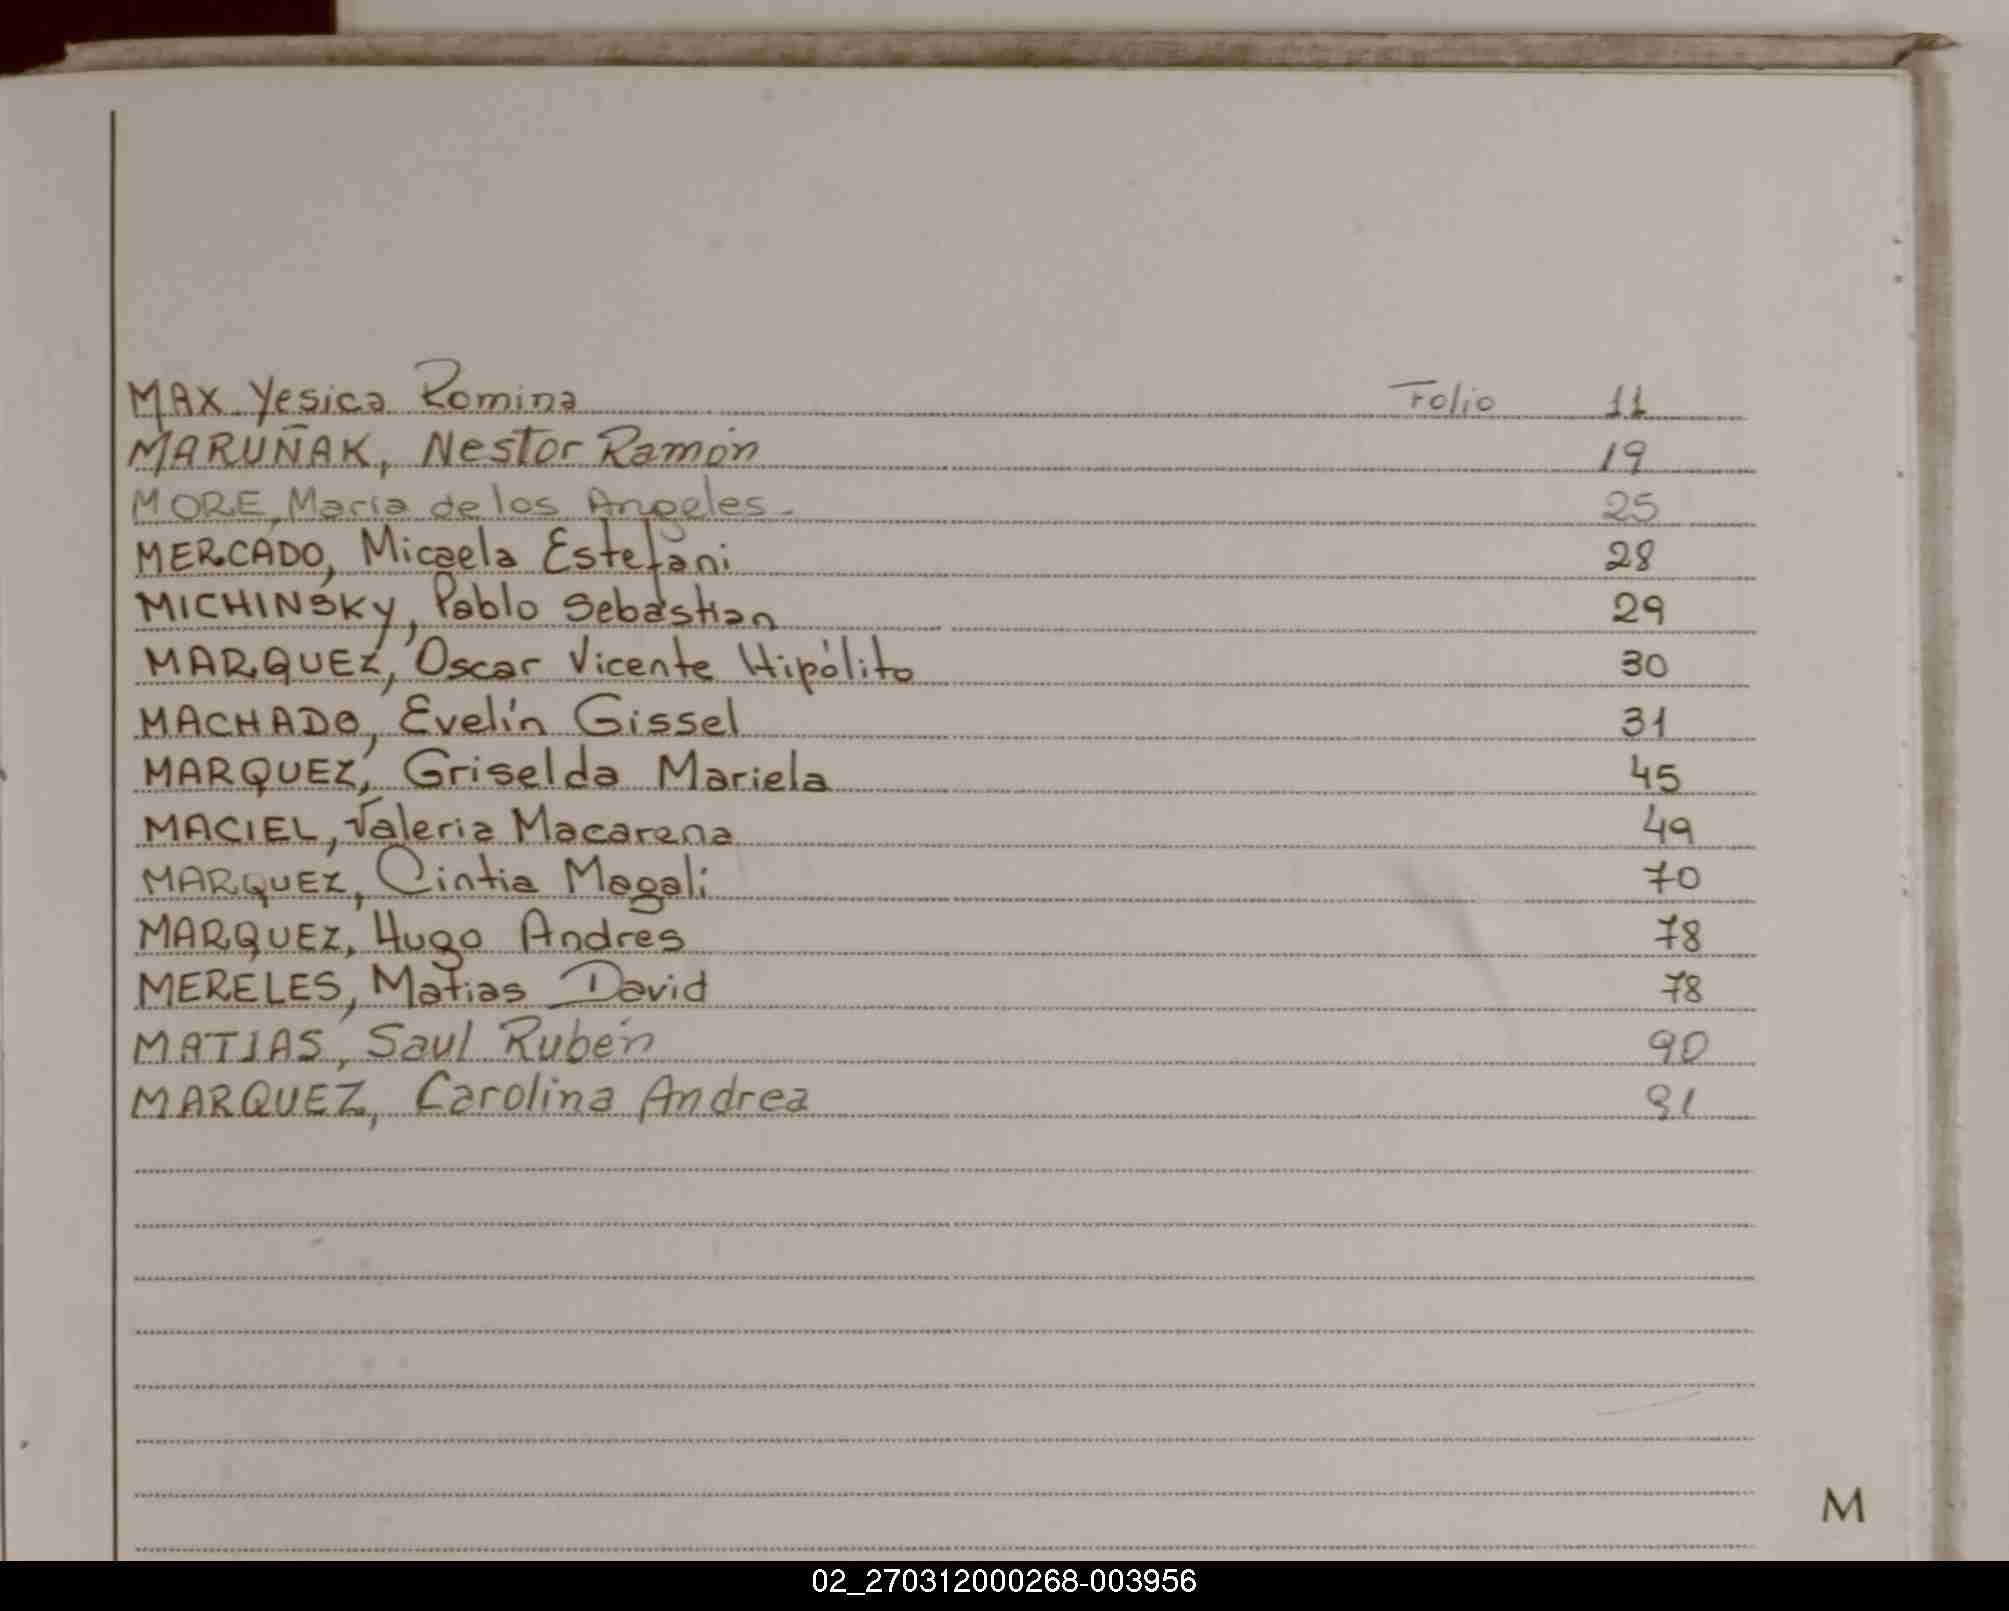 MAX Yesica Romina Folio 11
MARUÑAK, Nestor Ramón 19
MORE, Maria de los Angeles. 25
MERCADO, Micaela Estefani 28
MICHINSKY, Pablo Sebastian 29
MARQUEZ, Oscar Vicente Hipólito 30
MACHADO, Evelín Gissel 31
MARQUEZ, Griselda Mariela 45
MACIEL, Valeria Macarena 49
MARQUEZ, Cintia Magali 70
MARQUEZ, Hugo Andres 78
MERELES, Matias David 78
MATIAS, Saul Rubén 90
MARQUEZ, Carolina Andrea 91
M
02_270312000268-003956